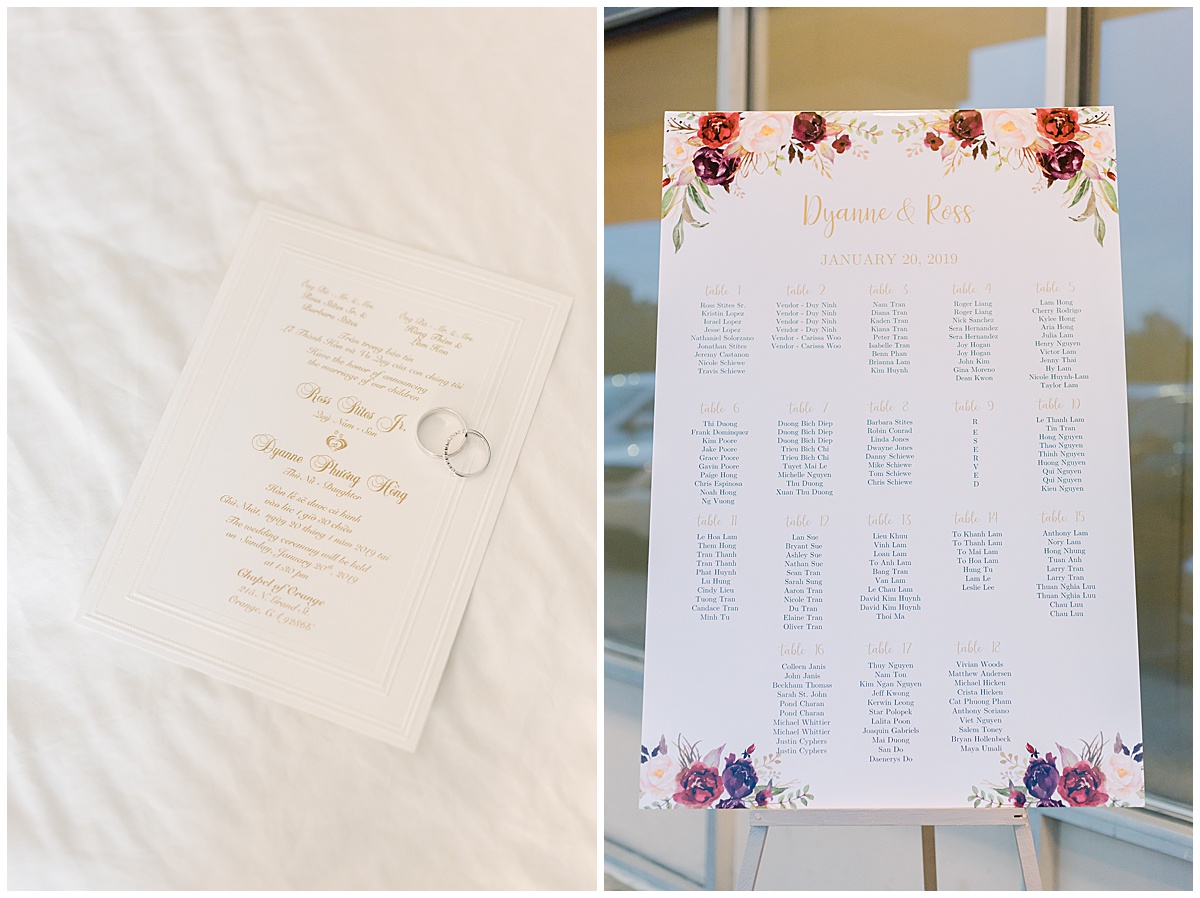 Ông Bà : Mr. & Mrs.
Ross Stites Sr. &
Barbara Stites
Ông Bà : Mr. & Mrs.
Hồng Thiên &
Lâm Hoa
Trân trọng báo tin
Lễ Thành Hôn và Vu Quy của con chúng tôi
Have the honor of announcing
the marriage of our children
Ross Stites Jr.
Quý Nam - Son
Dyanne Phương Hồng
Thứ Nữ - Daughter
Hôn lễ sẽ được cử hành
vào lúc 1 giờ 30 chiều
Chủ Nhật, ngày 20 tháng 1 năm 2019 tại
The wedding ceremony will be held
on Sunday, January 20th, 2019
at 1:30 pm
Chapel of Orange
N. Grand St
Orange, CA 92866
Dyanne & Ross
JANUARY 20, 2019
table 1
Ross Stites Sr.
Kristin Lopez
Israel Lopez
Jesse Lopez
Nathaniel Solorzano
Jonathan Stites
Jeremy Castanon
Nicole Schiewe
Travis Schiewe
table 2
Vendor - Duy Ninh
Vendor - Duy Ninh
Vendor - Duy Ninh
Vendor - Duy Ninh
Vendor - Carissa Woo
Vendor - Carissa Woo
table 3
Nam Tran
Diana Tran
Kaden Tran
Kiana Tran
Peter Tran
Isabelle Tran
Benn Phan
Brianna Lam
Kim Huynh
table 4
Roger Liang
Roger Liang
Nick Sanchez
Sera Hernandez
Sera Hernandez
Joy Hogan
Joy Hogan
John Kim
Gina Moreno
Dean Kwon
table 5
Lam Hong
Cherry Rodrigo
Kylee Hong
Aria Hong
Julia Lam
Henry Nguyen
Victor Lam
Jenny Thai
Hy Lam
Nicole Huynh-Lam
Taylor Lam
table 6
Thi Duong
Frank Dominquez
Kim Poore
Jake Poore
Grace Poore
Gavin Poore
Paige Hong
Chris Espinosa
Noah Hong
Ng Vuong
table 7
Duong Bich Diep
Duong Bich Diep
Duong Bich Diep
Trieu Bich Chi
Trieu Bich Chi
Tuyet Mai Le
Michelle Nguyen
Thi Duong
Xuan Thu Duong
table 8
Barbara Stites
Robin Conrad
Linda Jones
Dwayne Jones
Danny Schiewe
Mike Schiewe
Tom Schiewe
Chris Schiewe
table 9
R
E
S
E
R
V
E
D
table 10
Le Thanh Lam
Tin Tran
Hong Nguyen
Thao Nguyen
Thinh Nguyen
Huong Nguyen
Qui Nguyen
Qui Nguyen
Kieu Nguyen
table 11
Le Hoa Lam
Them Hong
Tran Thanh
Tran Thanh
Phat Huynh
Lu Hung
Cindy Lieu
Tuong Tran
Candace Tran
Minh Tu
table 12
Lan Sue
Bryant Sue
Ashley Sue
Nathan Sue
Sean Tran
Sarah Sung
Aaron Tran
Nicole Tran
Du Tran
Elaine Tran
Oliver Tran
table 13
Lieu Khuu
Vinh Lam
Loan Lam
To Anh Lam
Bang Tran
Van Lam
Le Chau Lam
David Kim Huynh
David Kim Huynh
Thoi Ma
table 14
To Khanh Lam
To Thanh Lam
To Mai Lam
To Hoa Lam
Hung Tu
Lam Le
Leslie Lee
table 15
Anthony Lam
Nory Lam
Hong Nhung
Tuan Anh
Larry Tran
Larry Tran
Thuan Nghia Luu
Thuan Nghia Luu
Chau Luu
Chau Luu
table 16
Colleen Janis
John Janis
Beckham Thomas
Sarah St. John
Pond Charan
Pond Charan
Michael Whittier
Michael Whittier
Justin Cyphers
Justin Cyphers
table 17
Thuy Nguyen
Nam Ton
Kim Ngan Nguyen
Jeff Kwong
Kerwin Leong
Star Polopek
Lalita Poon
Joaquin Gabriels
Mai Duong
San Do
Daenerys Do
table 18
Vivian Woods
Matthew Andersen
Michael Hicken
Crista Hicken
Cat Phuong Pham
Anthony Soriano
Viet Nguyen
Salem Toney
Bryan Hollenbeck
Maya Umali